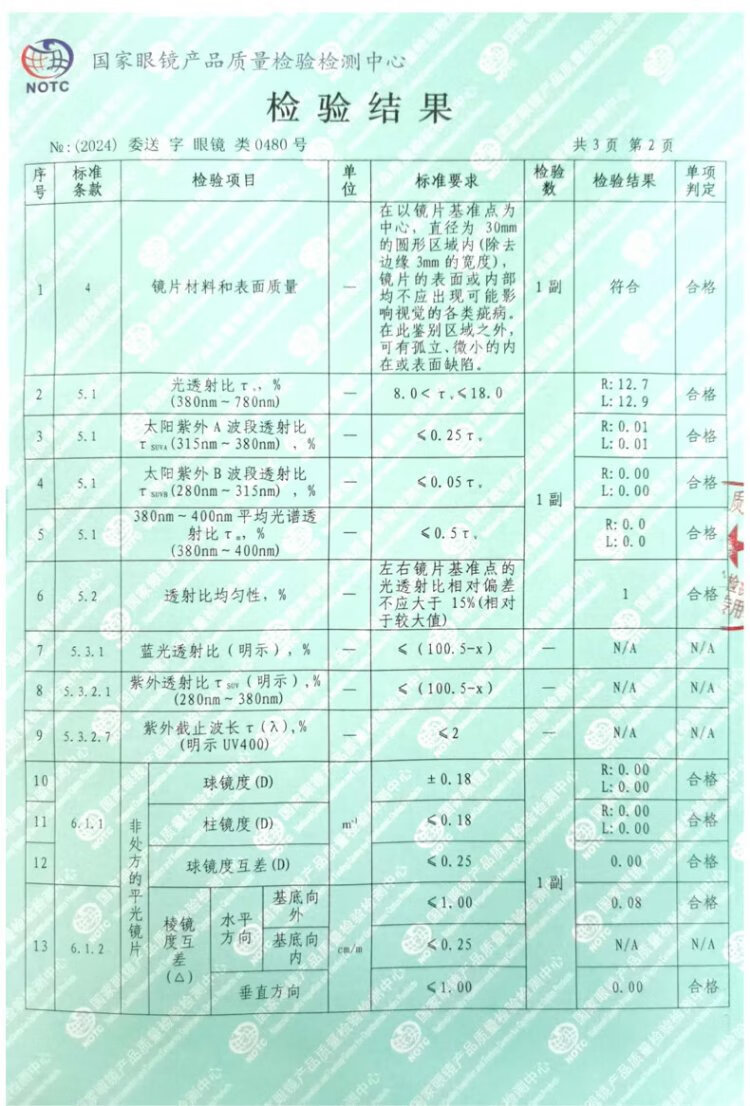 NOTC
国家眼镜产品质量检验检测中心
检验结果
№:(2024) 委送 字 眼镜 类0480号
共3页 第2页
序号 标准条款 检验项目 单位 标准要求 检验数 检验结果 单项判定
1 4 镜片材料和表面质量 —
在以镜片基准点为
中心，直径为 30mm
的圆形区域内(除去
边缘 3mm 的宽度)，
镜片的表面或内部
均不应出现可能影
响视觉的各类疵病。
在此鉴别区域之外，
可有孤立、微小的内
在或表面缺陷。
1副 符合 合格
2 5.1
光透射比 τv，%
(380nm～780nm)
— 8.0＜ τv≤18.0
R:12.7
L:12.9
合格
3 5.1
太阳紫外 A 波段透射比
τSUVA(315nm～380nm) ，%
— ≤0.25 τv
R:0.01
L:0.01
合格
4 5.1
太阳紫外 B 波段透射比
τSUVB(280nm～315nm) ，%
— ≤0.05 τv
1副
R:0.00
L:0.00
合格
5 5.1
380nm～400nm 平均光谱透
射比 τ，%
(380nm～400nm)
— ≤0.5 τv
R:0.0
L:0.0
合格
6 5.2 透射比均匀性，% —
左右镜片基准点的
光透射比相对偏差
不应大于 15%(相对
于较大值)
1 合格
7 5.3.1 蓝光透射比（明示），% — ≤（100.5-x） — N/A N/A
8 5.3.2.1
紫外透射比 τSUV（明示）,%
(280nm～380nm)
— ≤（100.5-x） — N/A N/A
9 5.3.2.7
紫外截止波长 τ（λ）,%
(明示 UV400)
— ≤2 — N/A N/A
10 球镜度(D) ±0.18
R:0.00
L:0.00
合格
11 6.1.1 非处方的平光镜片 柱镜度(D) m⁻¹ ≤0.18
R:0.00
L:0.00
合格
12 球镜度互差(D) ≤0.25 1副 0.00 合格
13 6.1.2 棱镜度互差(△) 水平方向 基底向外 cm/m ≤1.00 0.08 合格
基底向内 ≤0.25 N/A N/A
垂直方向 ≤1.00 0.00 合格
质
检验
用